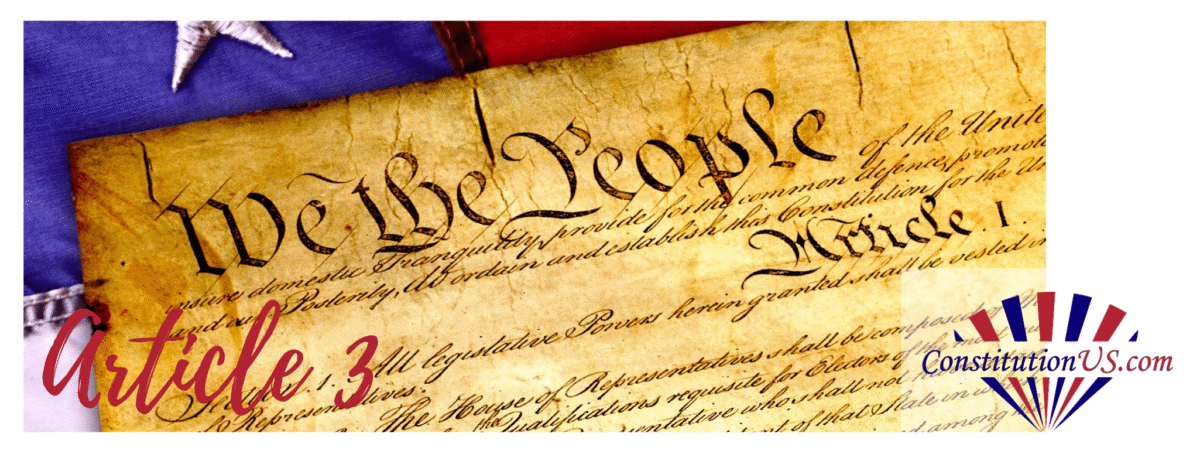 We the People
of the Unite
insure domestic Tranquility, provide for the common defence, promote
and our Posterity, do ordain and establish this Constitution for the Un
Article. I.
All legislative Powers herein granted shall be vested in
Section. 1.
of Representatives.
The House of Representatives shall be composed of
the Qualifications requisite for Electors of the most
who shall not
of that State in
among
Article 3
ConstitutionUS.com